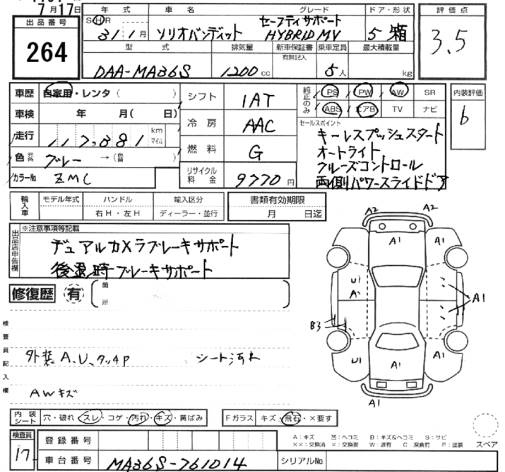 7月17日
出品番号
264
年式
車名
グレード
ドア・形状
評価点
31 1月
ソリオバンディット
セーフティサポート
HYBRID MV
5 箱
3.5
型式
排気量
新車保証書
有 記録簿
乗車定員
最大積載量
DAA-MA36S
1200cc
5人
kg
車歴
自家用・レンタ( )
車検 年 月( )
走行
117,881 km マイル
色 ブルー →( 色)
カラーNo ZMC
シフト
1AT
冷房
AAC
燃料
G
リサイクル料金
9770円
純正のみ
PS PW AW SR
ABS エアB TV ナビ
内装評価
b
セールスポイント
キーレスプッシュスタート
オートライト
クルーズコントロール
両側パワースライドドア
輸入車
モデル年式
ハンドル
右H・左H
輸入区分
ディーラー・並行
書類有効期限
月 日迄
出品店申告欄
※注意事項等記載
デュアルカメラブレーキサポート
後退時ブレーキサポート
修復歴 有
箇所
検査員記入欄
外装A,U,タッチP
シート汚れ
AWキズ
A2
A2
A1
A1
U1
A1
A1
A1
A1
B3
A1
内装シート
穴・破れ・スレ・コゲ・汚れ・キズ・黄ばみ
Fガラス
キズ・飛石・×要す
検査員
17
登録番号
車台番号
MA36S-761014
シリアルNo
A:キズ
スペア